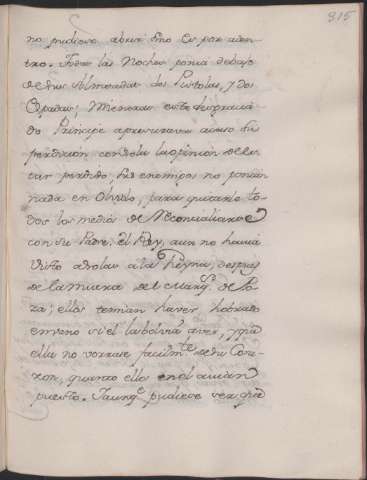 315
no pudiese abrir sino es por aden-
tro. Todas las Noches ponia debajo
de su Almoada dos Pistolas, y dos
Espadas; Mientras este desgracia-
do Principe apresurava acaso su
perdicion con sola la opinion de es-
tar perdido, sus enemigos no ponian
nada en Olvido, para quitarle to-
dos los medios de Reconciliarse
con su Padre. El Rey, aun no havia
visto a solas a la Reyna, despues
de la muerte del Marq.s de Po-
za; ellos temian haver trabajado
en vano si el la bolvia a ver, y que
ella no borrase facilm.te de su Cora-
zon, quanto ellos en el avian
puesto. Y aunq.e pudiese ver que